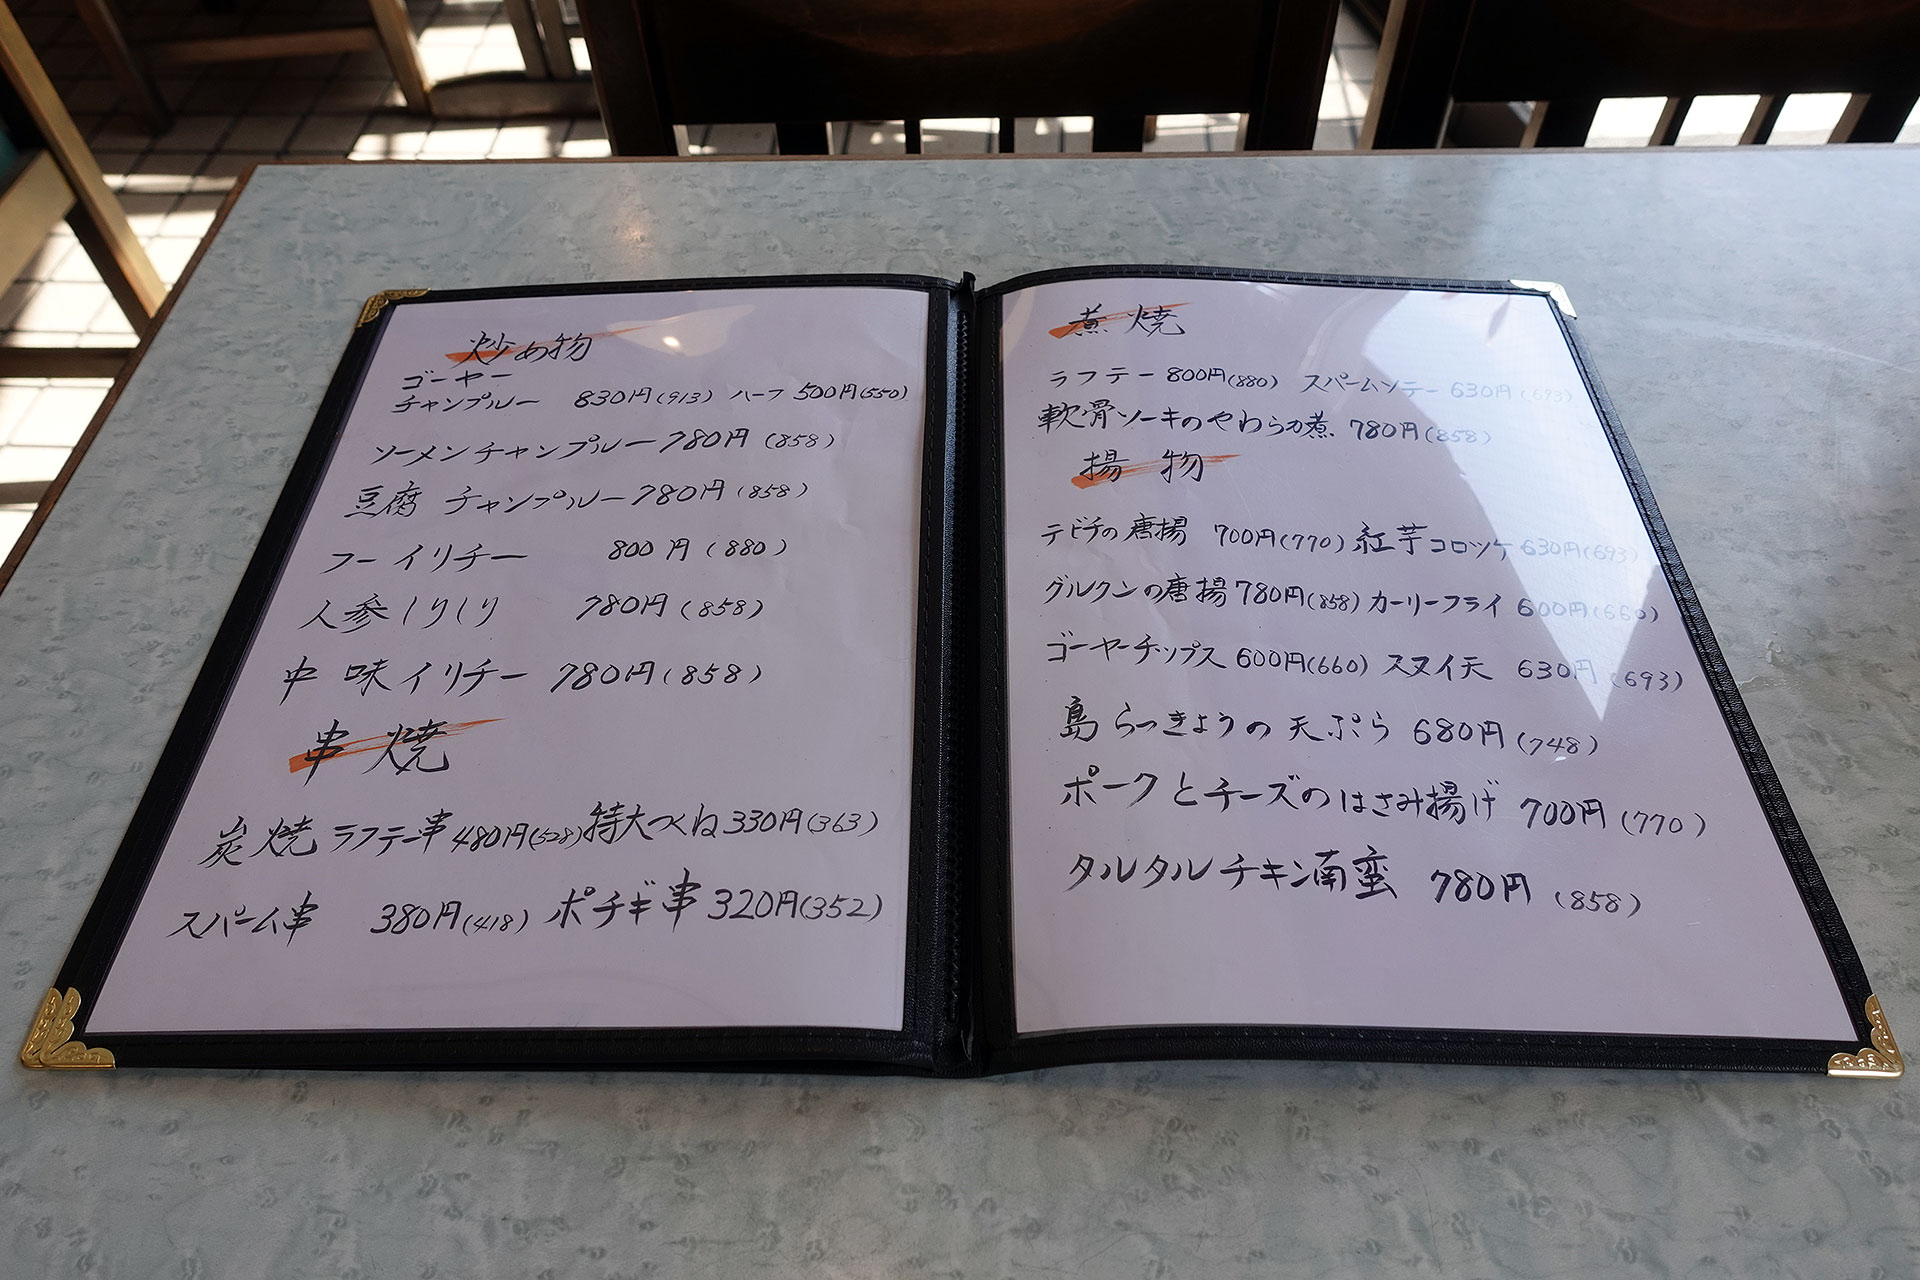 炒め物
ゴーヤー
チャンプルー 830円(913) ハーフ 500円(550)
ソーメンチャンプルー 780円(858)
豆腐 チャンプルー 780円(858)
フーイリチー 800円(880)
人参しりしり 780円(858)
中味イリチー 780円(858)
串焼
炭焼ラフテー串 480円(528) 特大つくね 330円(363)
スパーム串 380円(418) ポチギ串 320円(352)
煮焼
ラフテー 800円(880) スパームソテー 630円(693)
軟骨ソーキのやわらか煮 780円(858)
揚物
テビチの唐揚 700円(770) 紅芋コロッケ 630円(693)
グルクンの唐揚 780円(858) カーリーフライ 600円(660)
ゴーヤーチップス 600円(660) スヌイ天 630円(693)
島らっきょうの天ぷら 680円(748)
ポークとチーズのはさみ揚げ 700円(770)
タルタルチキン南蛮 780円(858)